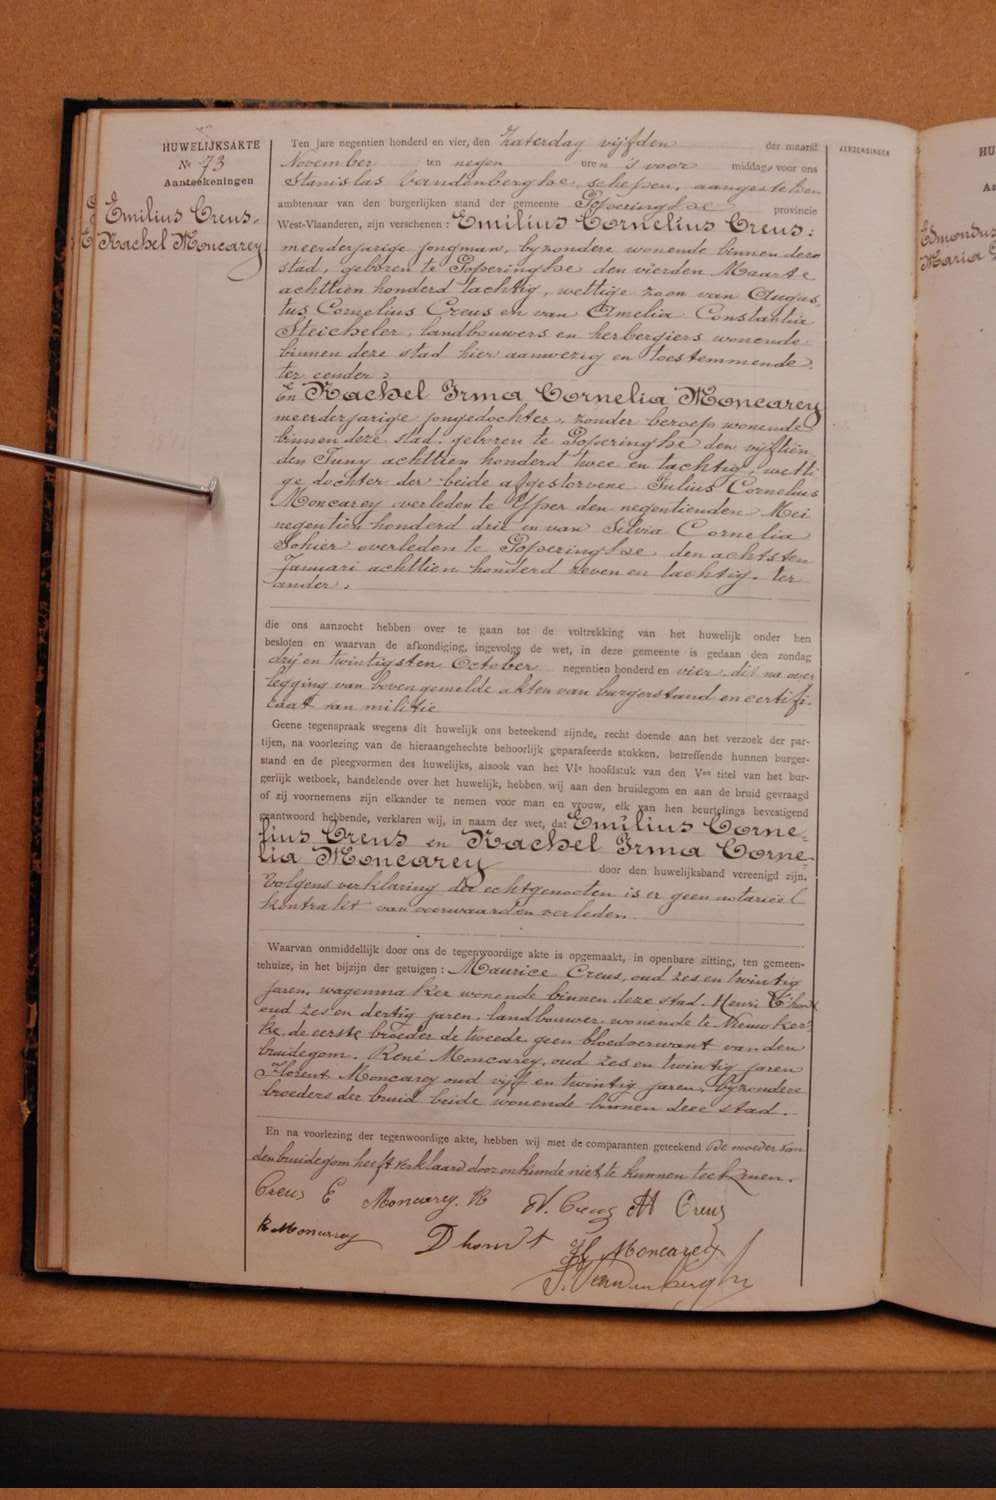 HUWELIJKSAKTE
No 73
Aanteekeningen
Emilius Creus.
Rachel Moncarey
Ten jare negentien honderd en vier, den Zaterdag vijfden der maand
November ten negen uren 's voor middags voor ons
Stanislas Vandenberghe, schepen, aangestelden
ambtenaar van den burgerlijken stand der gemeente Poperinghe provincie
West-Vlaanderen, zijn verschenen : Emilius Cornelius Creus:
meerderjarige jongman, byzondere wonende binnen deze
stad, geboren te Poperinghe den vierden Maarte
achttien honderd tachtig, wettige zoon van Augus-
tus Cornelius Creus en van Amelia Constantia
Steicheler, landbouwers en herbergiers wonende
binnen deze stad hier aanwezig en toestemmende.
ter eender;
En Rachel Irma Cornelia Moncarey
meerderjarige jongedochter, zonder beroep wonende
binnen deze stad. geboren te Poperinghe den vijftien
den Juny achttien honderd twee en tachtig, wetti
ge dochter der beide afgestorvene Julius Cornelius
Moncarey overleden te Ijper den negentienden Mei
negentien honderd drie en van Silvia Cornelia
Sohier overleden te Poperinghe den achtsten
Januari achttien honderd zeven en tachtig. ter
ander.
die ons aanzocht hebben over te gaan tot de voltrekking van het huwelijk onder hen
besloten en waarvan de afkondiging, ingevolge de wet, in deze gemeente is gedaan den zondag
drij en twintigsten October negentien honderd en vier. dit na over
legging van bovengemelde akten van burgerstand en certifi-
caat van militie
Geene tegenspraak wegens dit huwelijk ons beteekend zijnde, recht doende aan het verzoek der par-
tijen, na voorlezing van de hieraangehechte behoorlijk geparafeerde stukken, betreffende hunnen burger-
stand en de pleegvormen des huwelijks, alsook van het VIe hoofdstuk van den Ven titel van het bur-
gerlijk wetboek, handelende over het huwelijk, hebben wij aan den bruidegom en aan de bruid gevraagd
of zij voornemens zijn elkander te nemen voor man en vrouw, elk van hen beurtelings bevestigend
geantwoord hebbende, verklaren wij, in naam der wet, dat Emilius Corne-
lius Creus en Rachel Irma Corne-
lia Moncarey door den huwelijksband vereenigd zijn.
Volgens verklaring der echtgenooten is er geen notariëel
kontrakt van voorwaarden verleden
Waarvan onmiddellijk door ons de tegenwoordige akte is opgemaakt, in openbare zitting, ten gemeen-
tehuize, in het bijzijn der getuigen : Maurice Creus, oud zes en twintig
jaren, wagenmaker wonende binnen deze stad. Henri D'hondt
oud zes en dertig jaren, landbouwer wonende te Nieuwker-
ke, de eerste broeder de tweede geen bloedverwant van den
bruidegom. René Moncarey, oud zes en twintig jaren
Florent Moncarey oud vijf en twintig jaren, byzondere
broeders der bruid beide wonende binnen deze stad.
En na voorlezing der tegenwoordige akte, hebben wij met de comparanten geteekend De moeder van
den bruidegom heeft verklaard door onkunde niet te kunnen teekenen.
Creus E Moncarey. R A. Creus M Creus
R Moncarey Dhondt Fl Moncarey
S. Vandenberghe
AANWIJZINGEN
HU
Edmondus
Maria